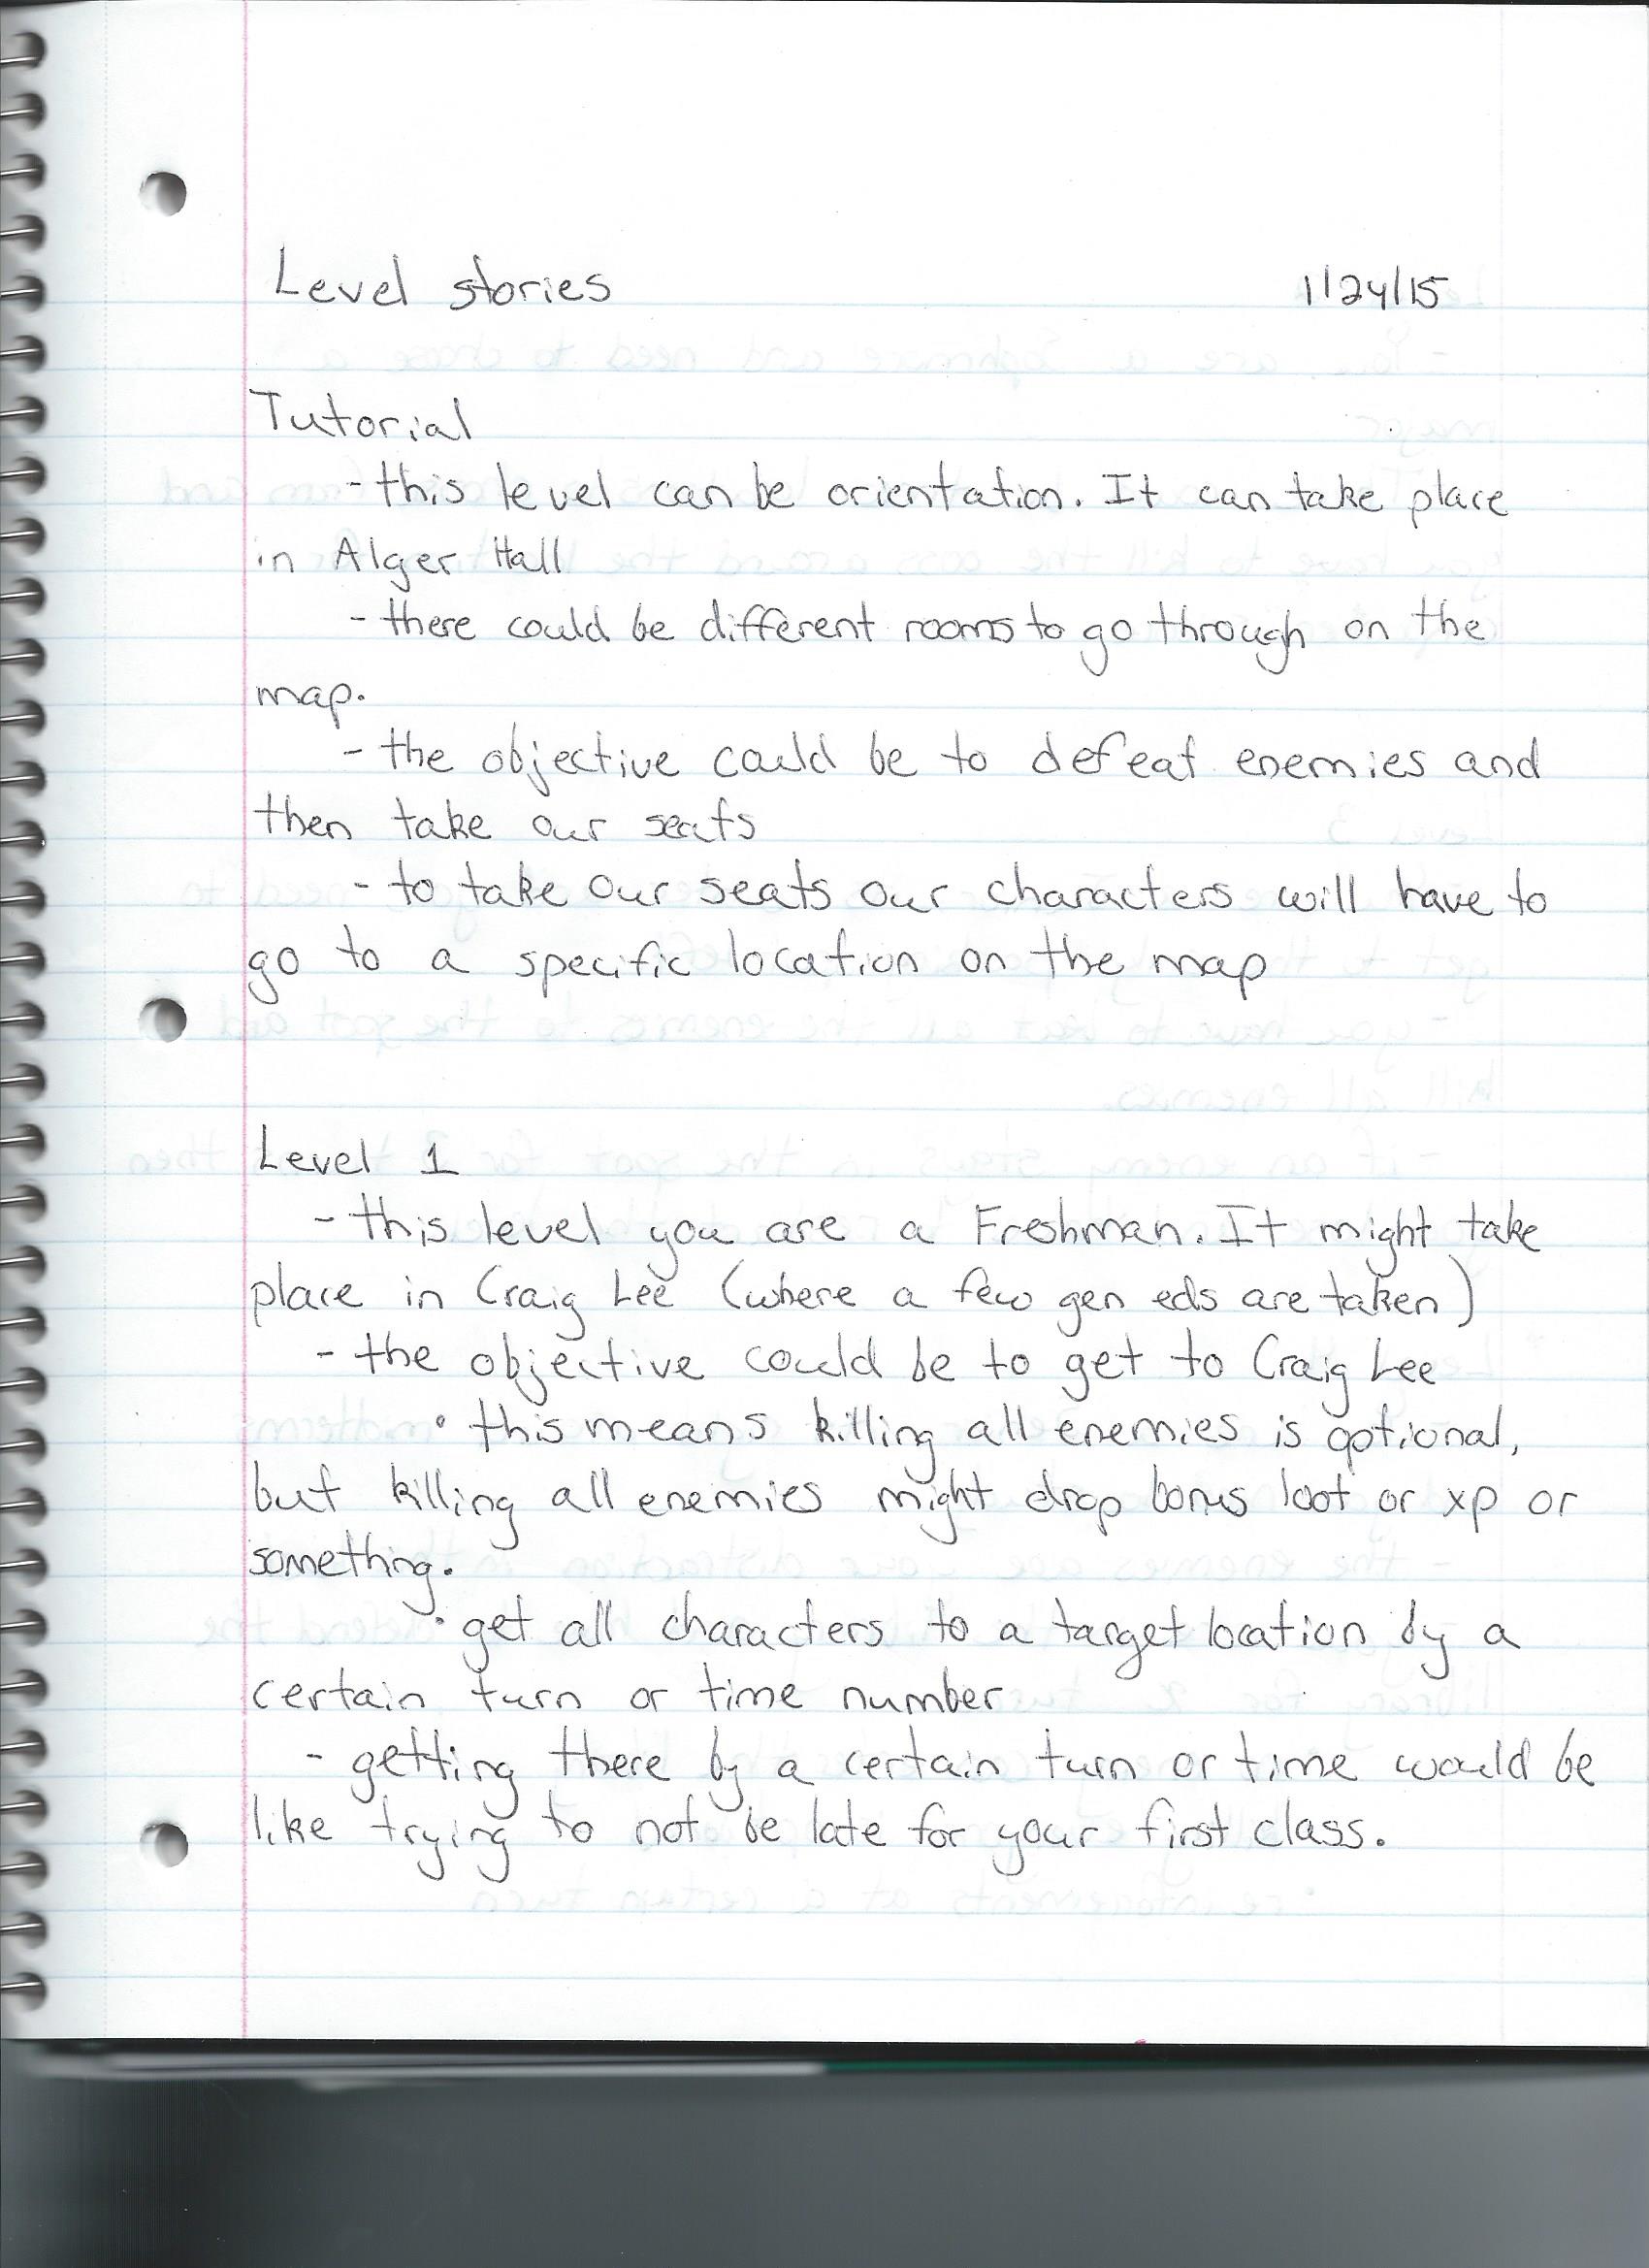 Level stories 1/24/15
Tutorial
- this level can be orientation. It can take place
in Alger Hall
- there could be different rooms to go through on the
map.
- the objective could be to defeat enemies and
then take our seats
- to take our seats our characters will have to
go to a specific location on the map
Level 1
- this level you are a Freshman. It might take
place in Craig Lee (where a few gen eds are taken)
- the objective could be to get to Craig Lee
• this means killing all enemies is optional,
but killing all enemies might drop bonus loot or xp or
something.
• get all characters to a target location by a
certain turn or time number
- getting there by a certain turn or time would be
like trying to not be late for your first class.